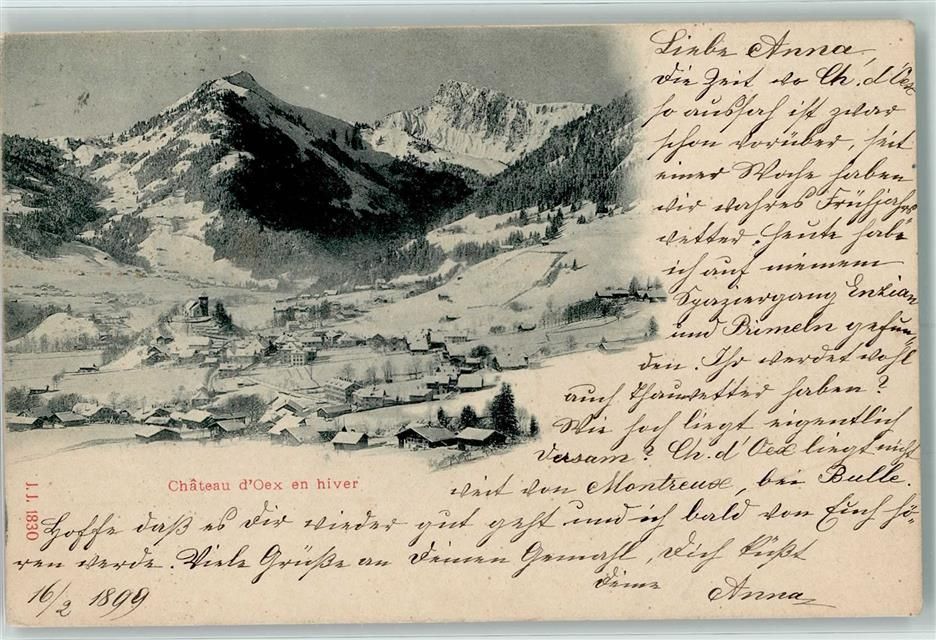 Liebe Anna,
Die Zeit wo Ch. d'Oex
so aussah ist zwar
schon vorüber, seit
einer Woche haben
wir wahres Frühjahrs
wetter. Heute habe
ich auf meinem
Spaziergang Enzian
und Primeln gefun-
den. Ihr werdet wohl
auch Thauwetter haben?
Wie hoch liegt eigentlich
Versam? Ch. d'Oex liegt nicht
weit von Montreux, bei Bulle.
Château d'Oex en hiver
J. J. 1830
Hoffe daß es Dir wieder gut geht und ich bald von Euch hö-
ren werde. Viele Grüße an Deinen Gemahl, Dich küßt
Deine Anna
16/2 1899